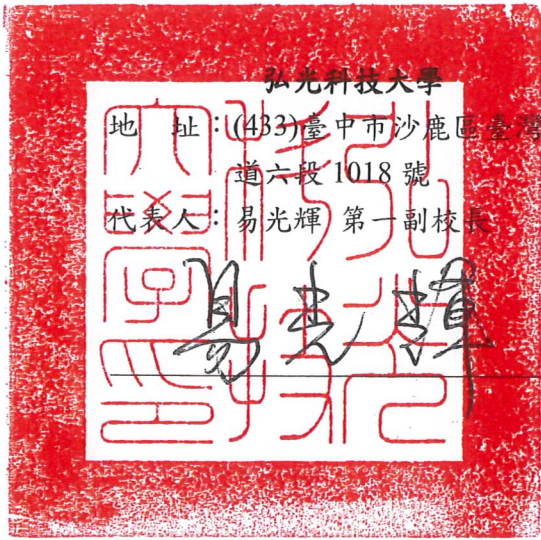 弘光科技大學
地 址：(433)臺中市沙鹿區臺灣
道六段 1018 號
代表人：易光輝 第一副校長
易光輝
弘光
科技
大學印